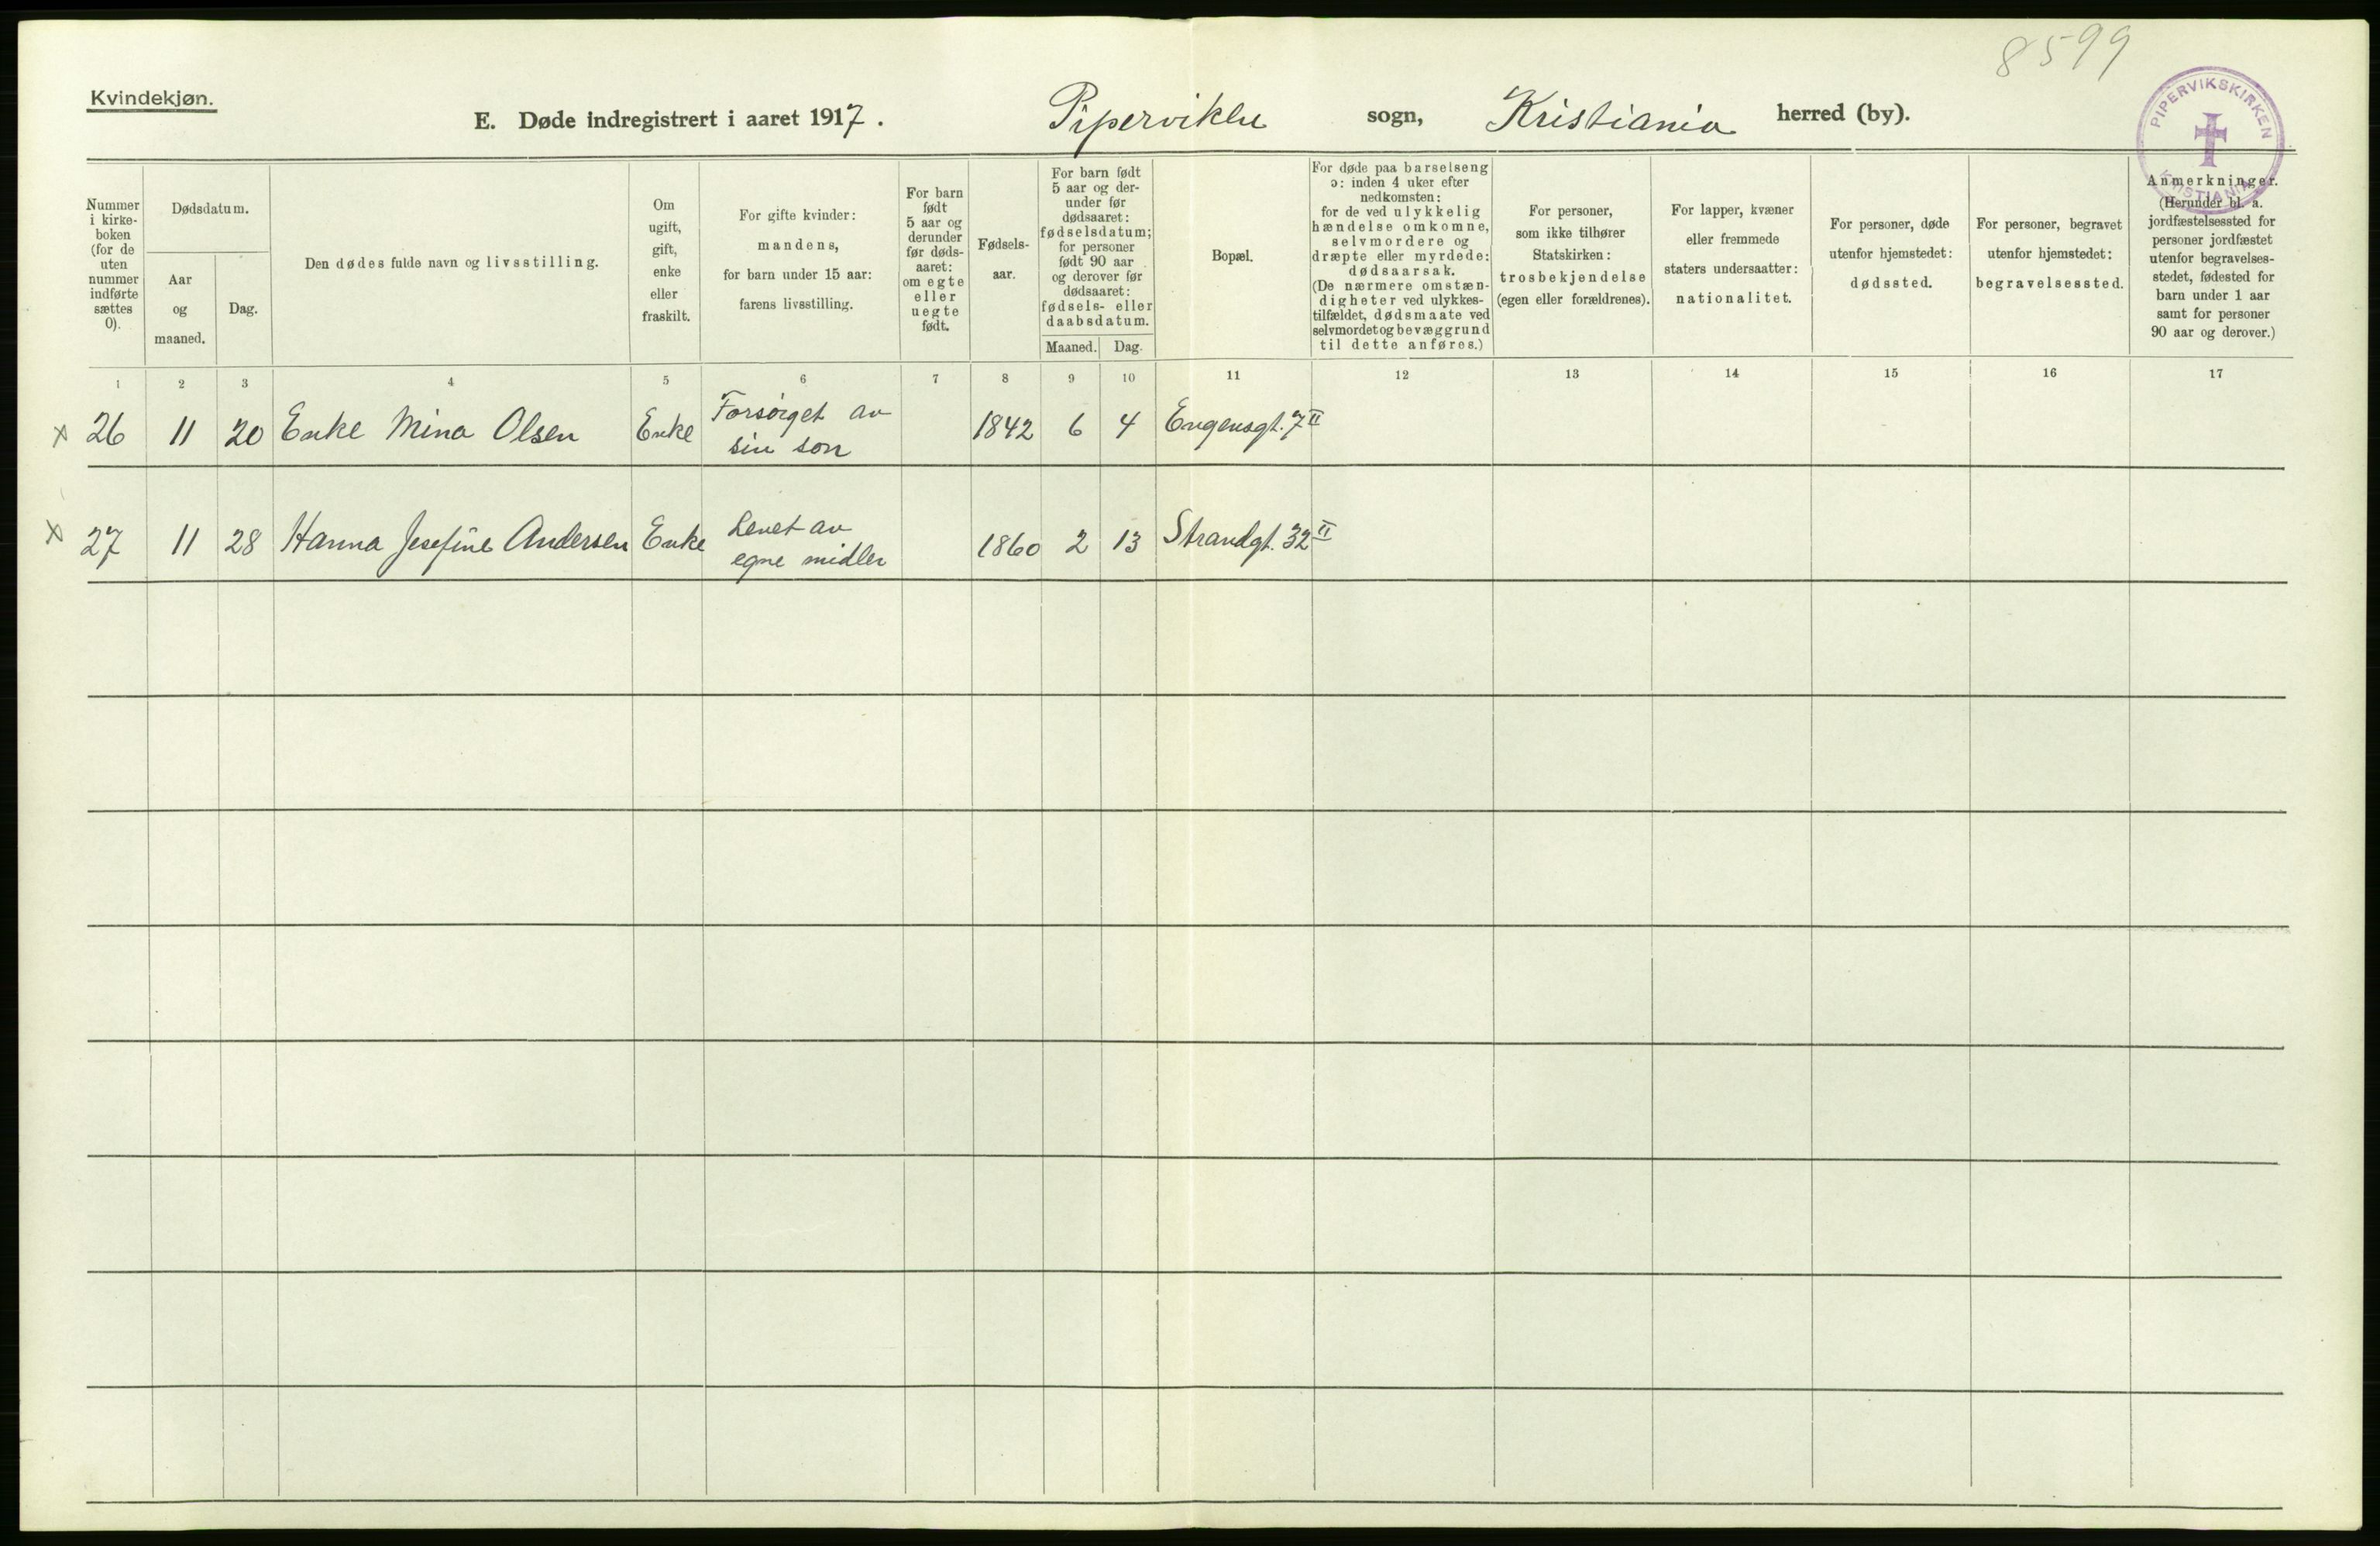 8599
Kvindekjøn.
E. Døde indregistrert i aaret 1917. Piperviken sogn, Kristiania herred (by).
PIPERVIKSKIRKEN
KRISTIANIA
Nummer
i kirke-
boken
(for de
uten
nummer
indførte
sættes
0).
Dødsdatum.
Aar
og
maaned.
Dag.
Den dødes fulde navn og livsstilling.
Om
ugift,
gift,
enke
eller
fraskilt.
For gifte kvinder:
mandens,
for barn under 15 aar:
farens livsstilling.
For barn
født
5 aar og
derunder
før døds-
aaret:
om egte
eller
uegte
født.
Fødsels-
aar.
For barn født
5 aar og der-
under før
dødsaaret:
fødselsdatum;
for personer
født 90 aar
og derover før
dødsaaret:
fødsels- eller
daabsdatum.
Maaned. Dag.
Bopæl.
For døde paa barselseng
ɔ: inden 4 uker efter
nedkomsten:
for de ved ulykkelig
hændelse omkomne,
selvmordere og
dræpte eller myrdede:
dødsaarsak.
(De nærmere omstæn-
digheter ved ulykkes-
tilfældet, dødsmaate ved
selvmordet og bevæggrund
til dette anføres.)
For personer,
som ikke tilhører
Statskirken:
trosbekjendelse
(egen eller forældrenes).
For lapper, kvæner
eller fremmede
staters undersaatter:
nationalitet.
For personer, døde
utenfor hjemstedet:
dødssted.
For personer, begravet
utenfor hjemstedet:
begravelsessted.
Anmerkninger.
(Herunder bl. a.
jordfæstelsessted for
personer jordfæstet
utenfor begravelses-
stedet, fødested for
barn under 1 aar
samt for personer
90 aar og derover.)
1 2 3 4 5 6 7 8 9 10 11 12 13 14 15 16 17
x 26 11 20 Enke Mina Olsen Enke Forsørget av
sin søn 1842 6 4 Engensgt. 7 II
x 27 11 28 Hanna Josefine Andersen Enke Levet av
egne midler 1860 2 13 Strandgt. 32 II